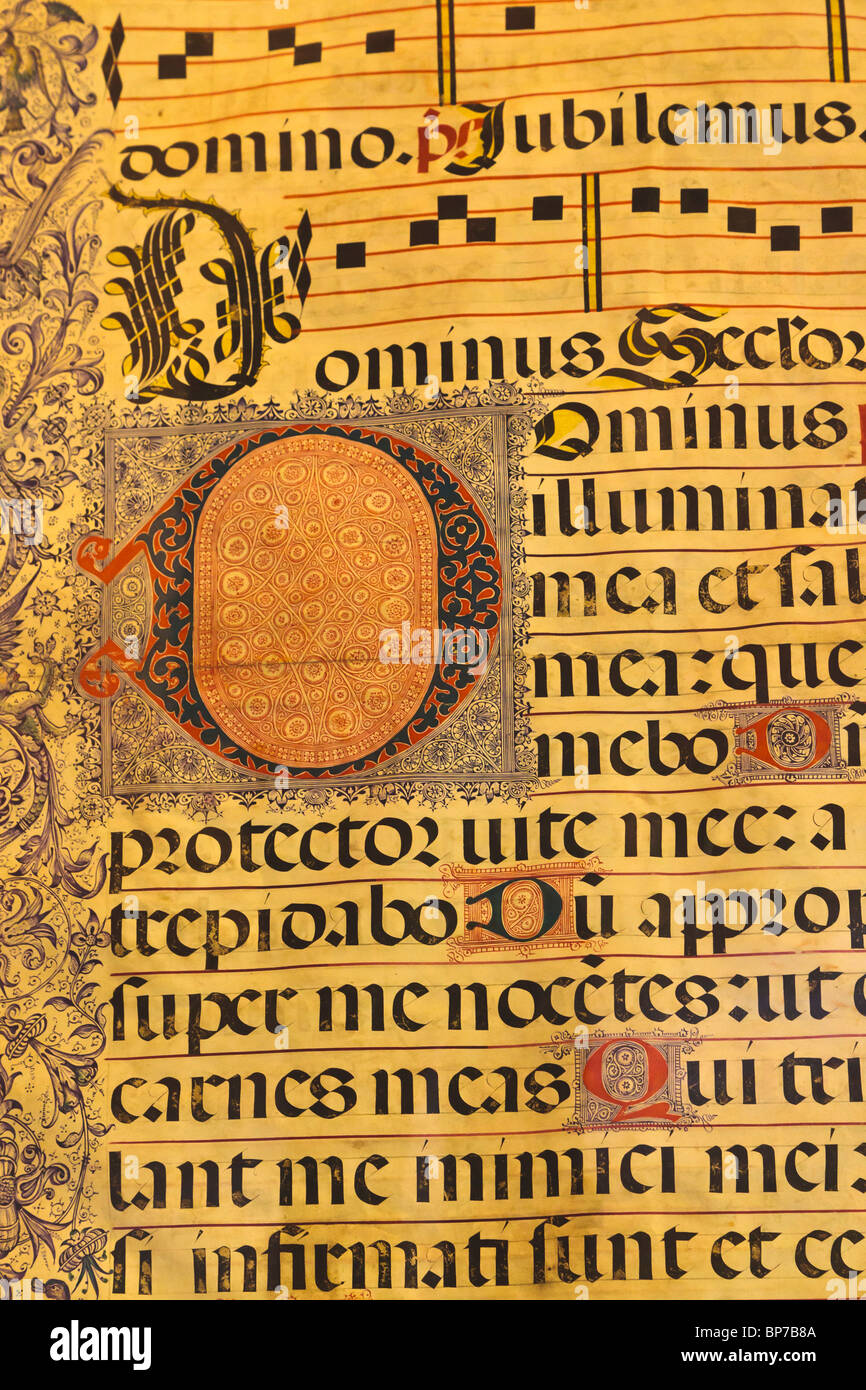 domino. ps. Jubilemus
Dominus Secĺor
Ominus
illuminat
mea et sal
mea: que
mebo D
protector uite mee: a
trepidabo Dū approp
super me nocētes: ut
carnes meas Qui tri
lant me inimici mei:
si infirmati sunt et ce
alamy
Image ID: BP7B8A
www.alamy.com